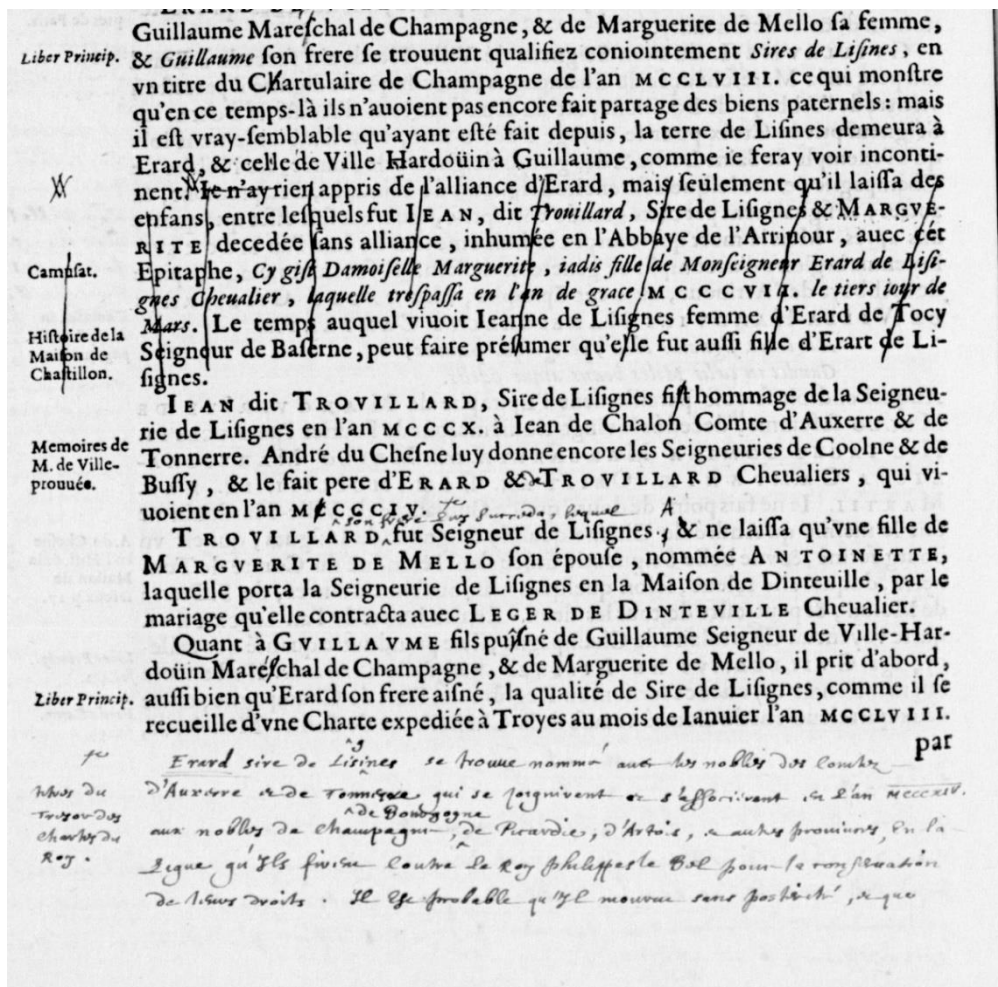 Guillaume Mareſchal de Champagne, & de Marguerite de Mello ſa femme,
Liber Princip.
& Guillaume ſon frere ſe trouuent qualifiez coniointement Sires de Liſines, en
vn titre du Chartulaire de Champagne de l'an MCCLVIII. ce qui monſtre
qu'en ce temps-là ils n'auoient pas encore fait partage des biens paternels: mais
il eſt vray-ſemblable qu'ayant eſté fait depuis, la terre de Liſines demeura à
Erard, & celle de Ville-Hardoüin à Guillaume, comme ie feray voir inconti-
nent. Ie n'ay rien appris de l'alliance d'Erard, mais ſeulement qu'il laiſſa des
enfans, entre leſquels fut IEAN, dit Trouillard, Sire de Liſignes & MARGVE-
RITE decedée ſans alliance, inhumée en l'Abbaye de l'Arriuour, auec cét
Camuſat.
Epitaphe, Cy giſt Damoiſelle Marguerite, iadis fille de Monſeigneur Erard de Liſi-
gnes Cheualier, laquelle treſpaſſa en l'an de grace MCCCVII. le tiers iour de
Mars. Le temps auquel viuoit Ieanne de Liſignes femme d'Erard de Tocy
Hiſtoire de la
Maiſon de
Chaſtillon.
Seigneur de Baſerne, peut faire préſumer qu'elle fut auſſi fille d'Erart de Li-
ſignes.
IEAN dit TROVILLARD, Sire de Liſignes fiſt hommage de la Seigneu-
rie de Liſignes en l'an MCCCX. à Iean de Chalon Comte d'Auxerre & de
Memoires de
M. de Ville-
prouuée.
Tonnerre. André du Cheſne luy donne encore les Seigneuries de Coolne & de
Buſſy, & le fait pere d'ERARD & TROVILLARD Cheualiers, qui vi-
uoient en l'an MCCCCIV.
son frere luy succeda, lequel
TROVILLARD fut Seigneur de Liſignes, & ne laiſſa qu'vne fille de
MARGVERITE DE MELLO ſon épouſe, nommée ANTOINETTE,
laquelle porta la Seigneurie de Liſignes en la Maiſon de Dinteuille, par le
mariage qu'elle contracta auec LEGER DE DINTEVILLE Cheualier.
Quant à GVILLAVME fils puiſné de Guillaume Seigneur de Ville-Har-
doüin Maréſchal de Champagne, & de Marguerite de Mello, il prit d'abord,
Liber Princip.
auſſi bien qu'Erard ſon frere aiſné, la qualité de Sire de Liſignes, comme il ſe
recueille d'vne Charte expediée à Troyes au mois de Ianuier l'an MCCLVIII.
par
Erard sire de Lisines se trouue nommé auec les nobles des Comtez
titres du
Tresor des
Chartes du
Roy.
d'Auxerre et de Tonnerre qui se joignirent et s'associerent en l'an MCCCXIV.
de Bourgogne
aux nobles de Champagne, de Picardie, d'Artois, & autres prouinces, en la
Ligue qu'Ils firent contre le Roy Philippes le Bel pour la conseruation
de leurs droits. Il est probable qu'Il mourut sans posterité, & que